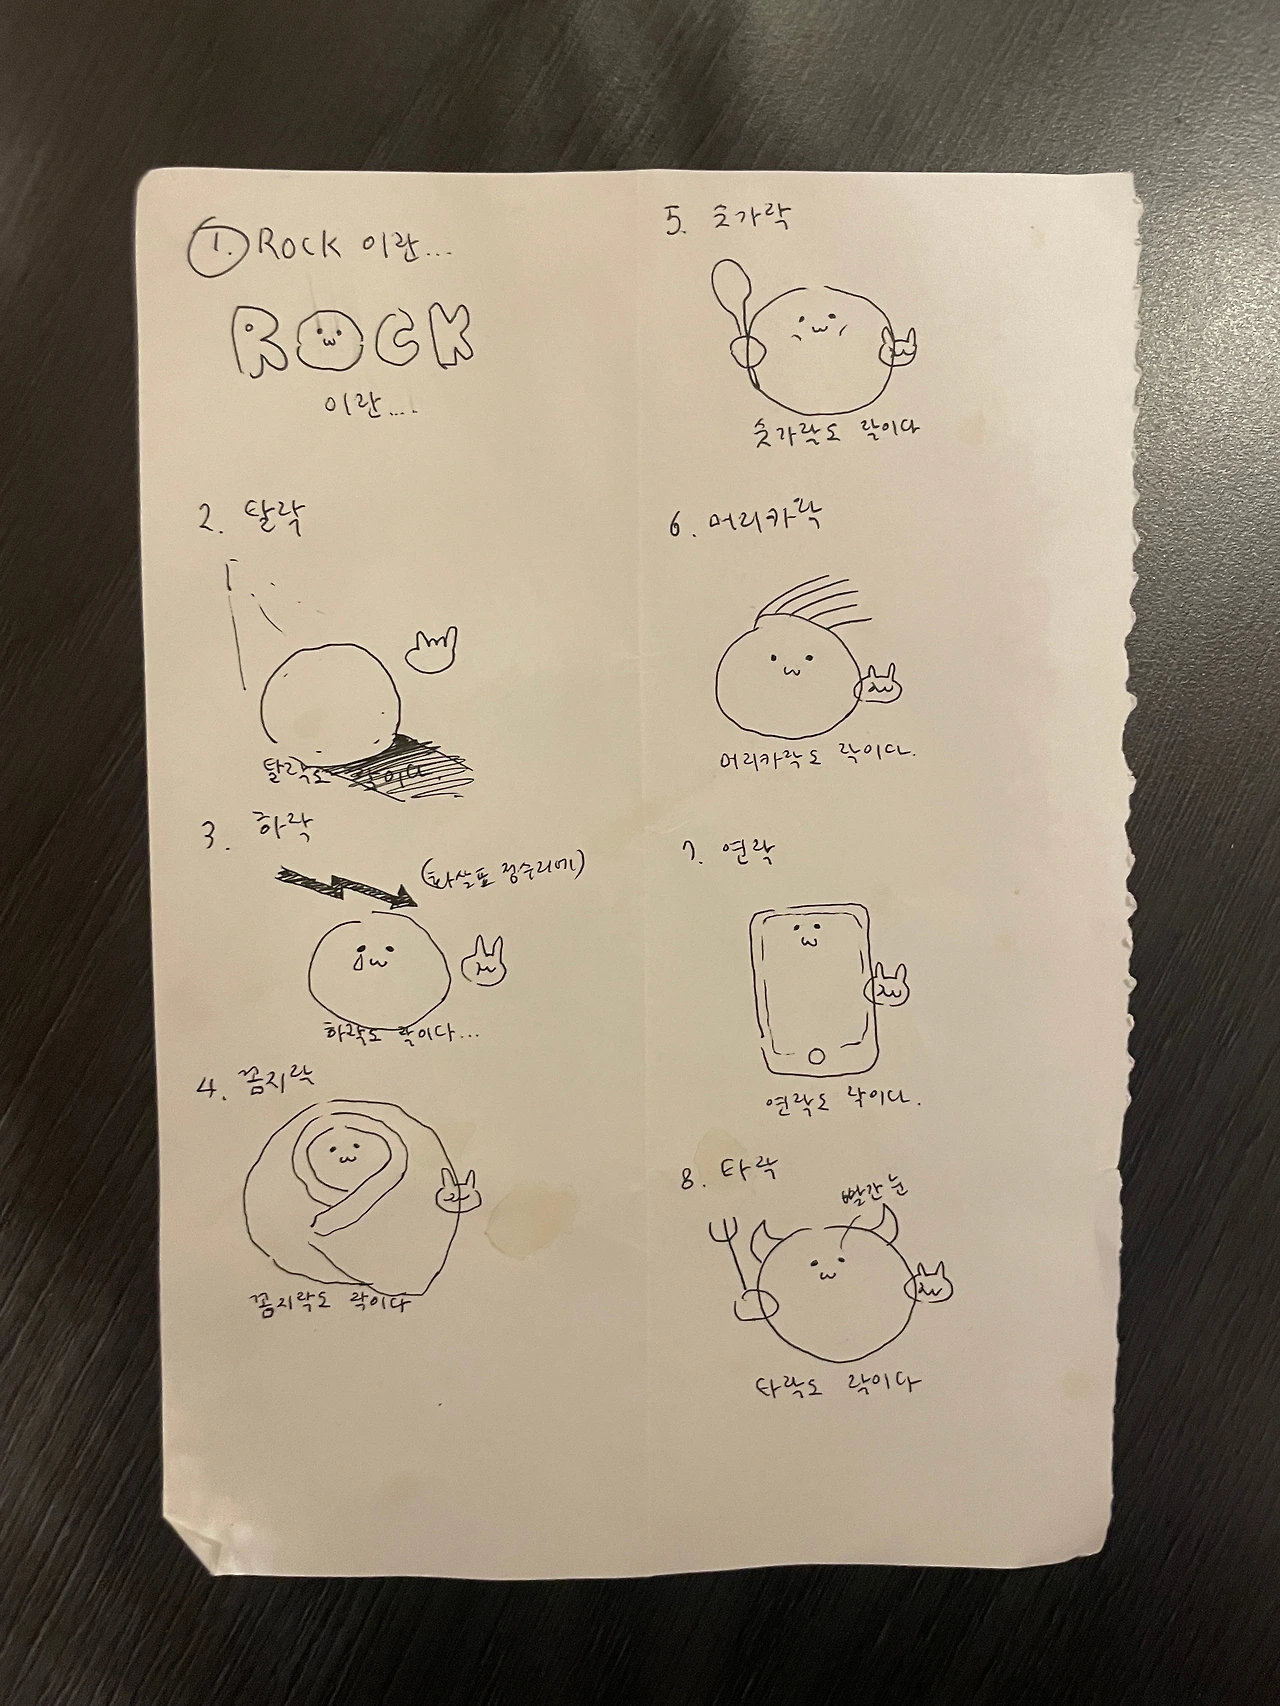 1. Rock 이란...
ROCK
이란....
2. 탈락
탈락도 락이다.
3. 하락
(화살표 정수리에)
하락도 락이다...
4. 꼼지락
꼼지락도 락이다
5. 숫가락
숫가락도 락이다
6. 머리카락
머리카락도 락이다.
7. 연락
연락도 락이다.
8. 타락
빨간눈
타락도 락이다